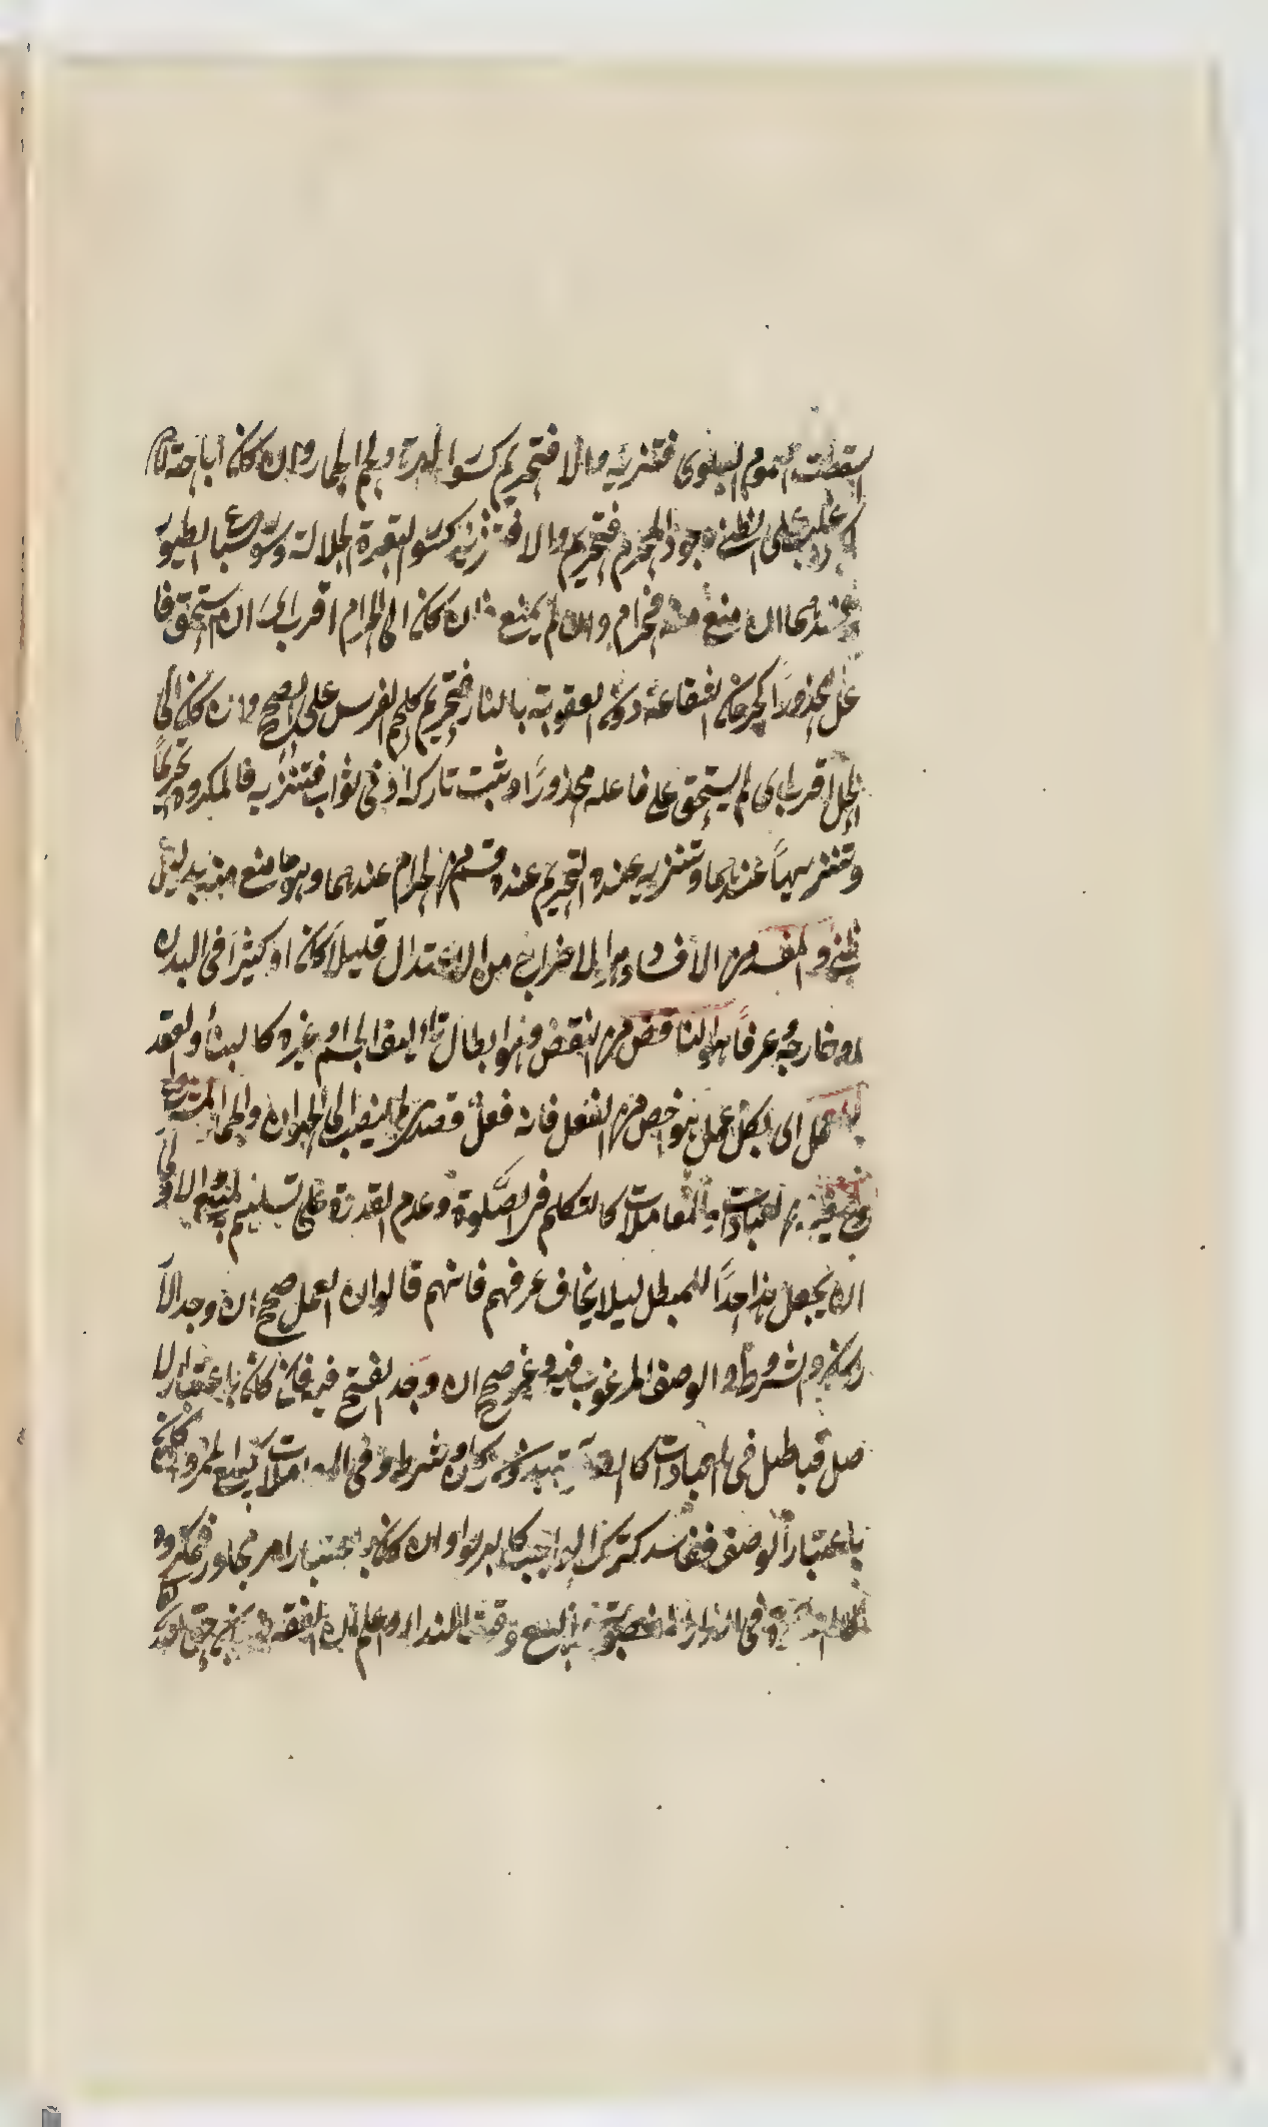 سقطت لعموم البلوى فتنزيه والا فتحريم كسؤر الهرة ولحم الحمار وان كان اباحته
غلب على الظن وجود المحرم فتحريم والا فتنزيه كسؤر البقرة الجلالة وسؤر سباع الطيور
وعندهما ان منع منه فحرام وان لم يمنع فان كان الى الحرام اقرب اى ان استحق فا
عل محذورا كحرمان الشفاعة دون العقوبة بالنار فتحريم كلحم الفرس على الصحيح وان كان الى
الحل اقرب اى لم يستحق على فاعله محذورا ويثبت تاركه ادنى ثواب فتنزيه فالمكروه تحريما
وتنزيهيا عندهما وتنزيه عنده التحريم عنده قسم من الحرام عندهما وهو ما منع منه بدليل
ظنى والمفسد من الافساد وهو الاخراج من الاعتدال قليلا كان او كثيرا فى البدن
او خارجه عرفا هو الناقض من النقض وهو ابطال تاليف الجسم او غيره كالبناء والعقد
العمل اى بكل عمل هو اخص من الفعل فانه فعل قصدى لم ينصب الى الحيوان والجماد
فيه من العبادات والمعاملات كالتكلم فى الصلوة وعدم القدرة على تسليم المبيع الاولى
ان يجعل هذا حدا للمبطل ليلا يخاف عرفهم فانهم قالوا ان العمل صحيح ان وجد الا
ركان والشروط والوصف المرغوب فيه وغير صحيح ان وجد القبح فيه فان كان باعتبار الا
صل فباطل فى العبادات كالصلوة بدون ركن او شرط وفى المعاملات كبيع الخمر وان كان
باعتبار الوصف ففاسد كترك الواجب كالربوا وان كان باعتبار امر مجاور فمكروه
كالصلوة فى الدار المغصوبة والبيع وقت النداء واعلم ان الفقه